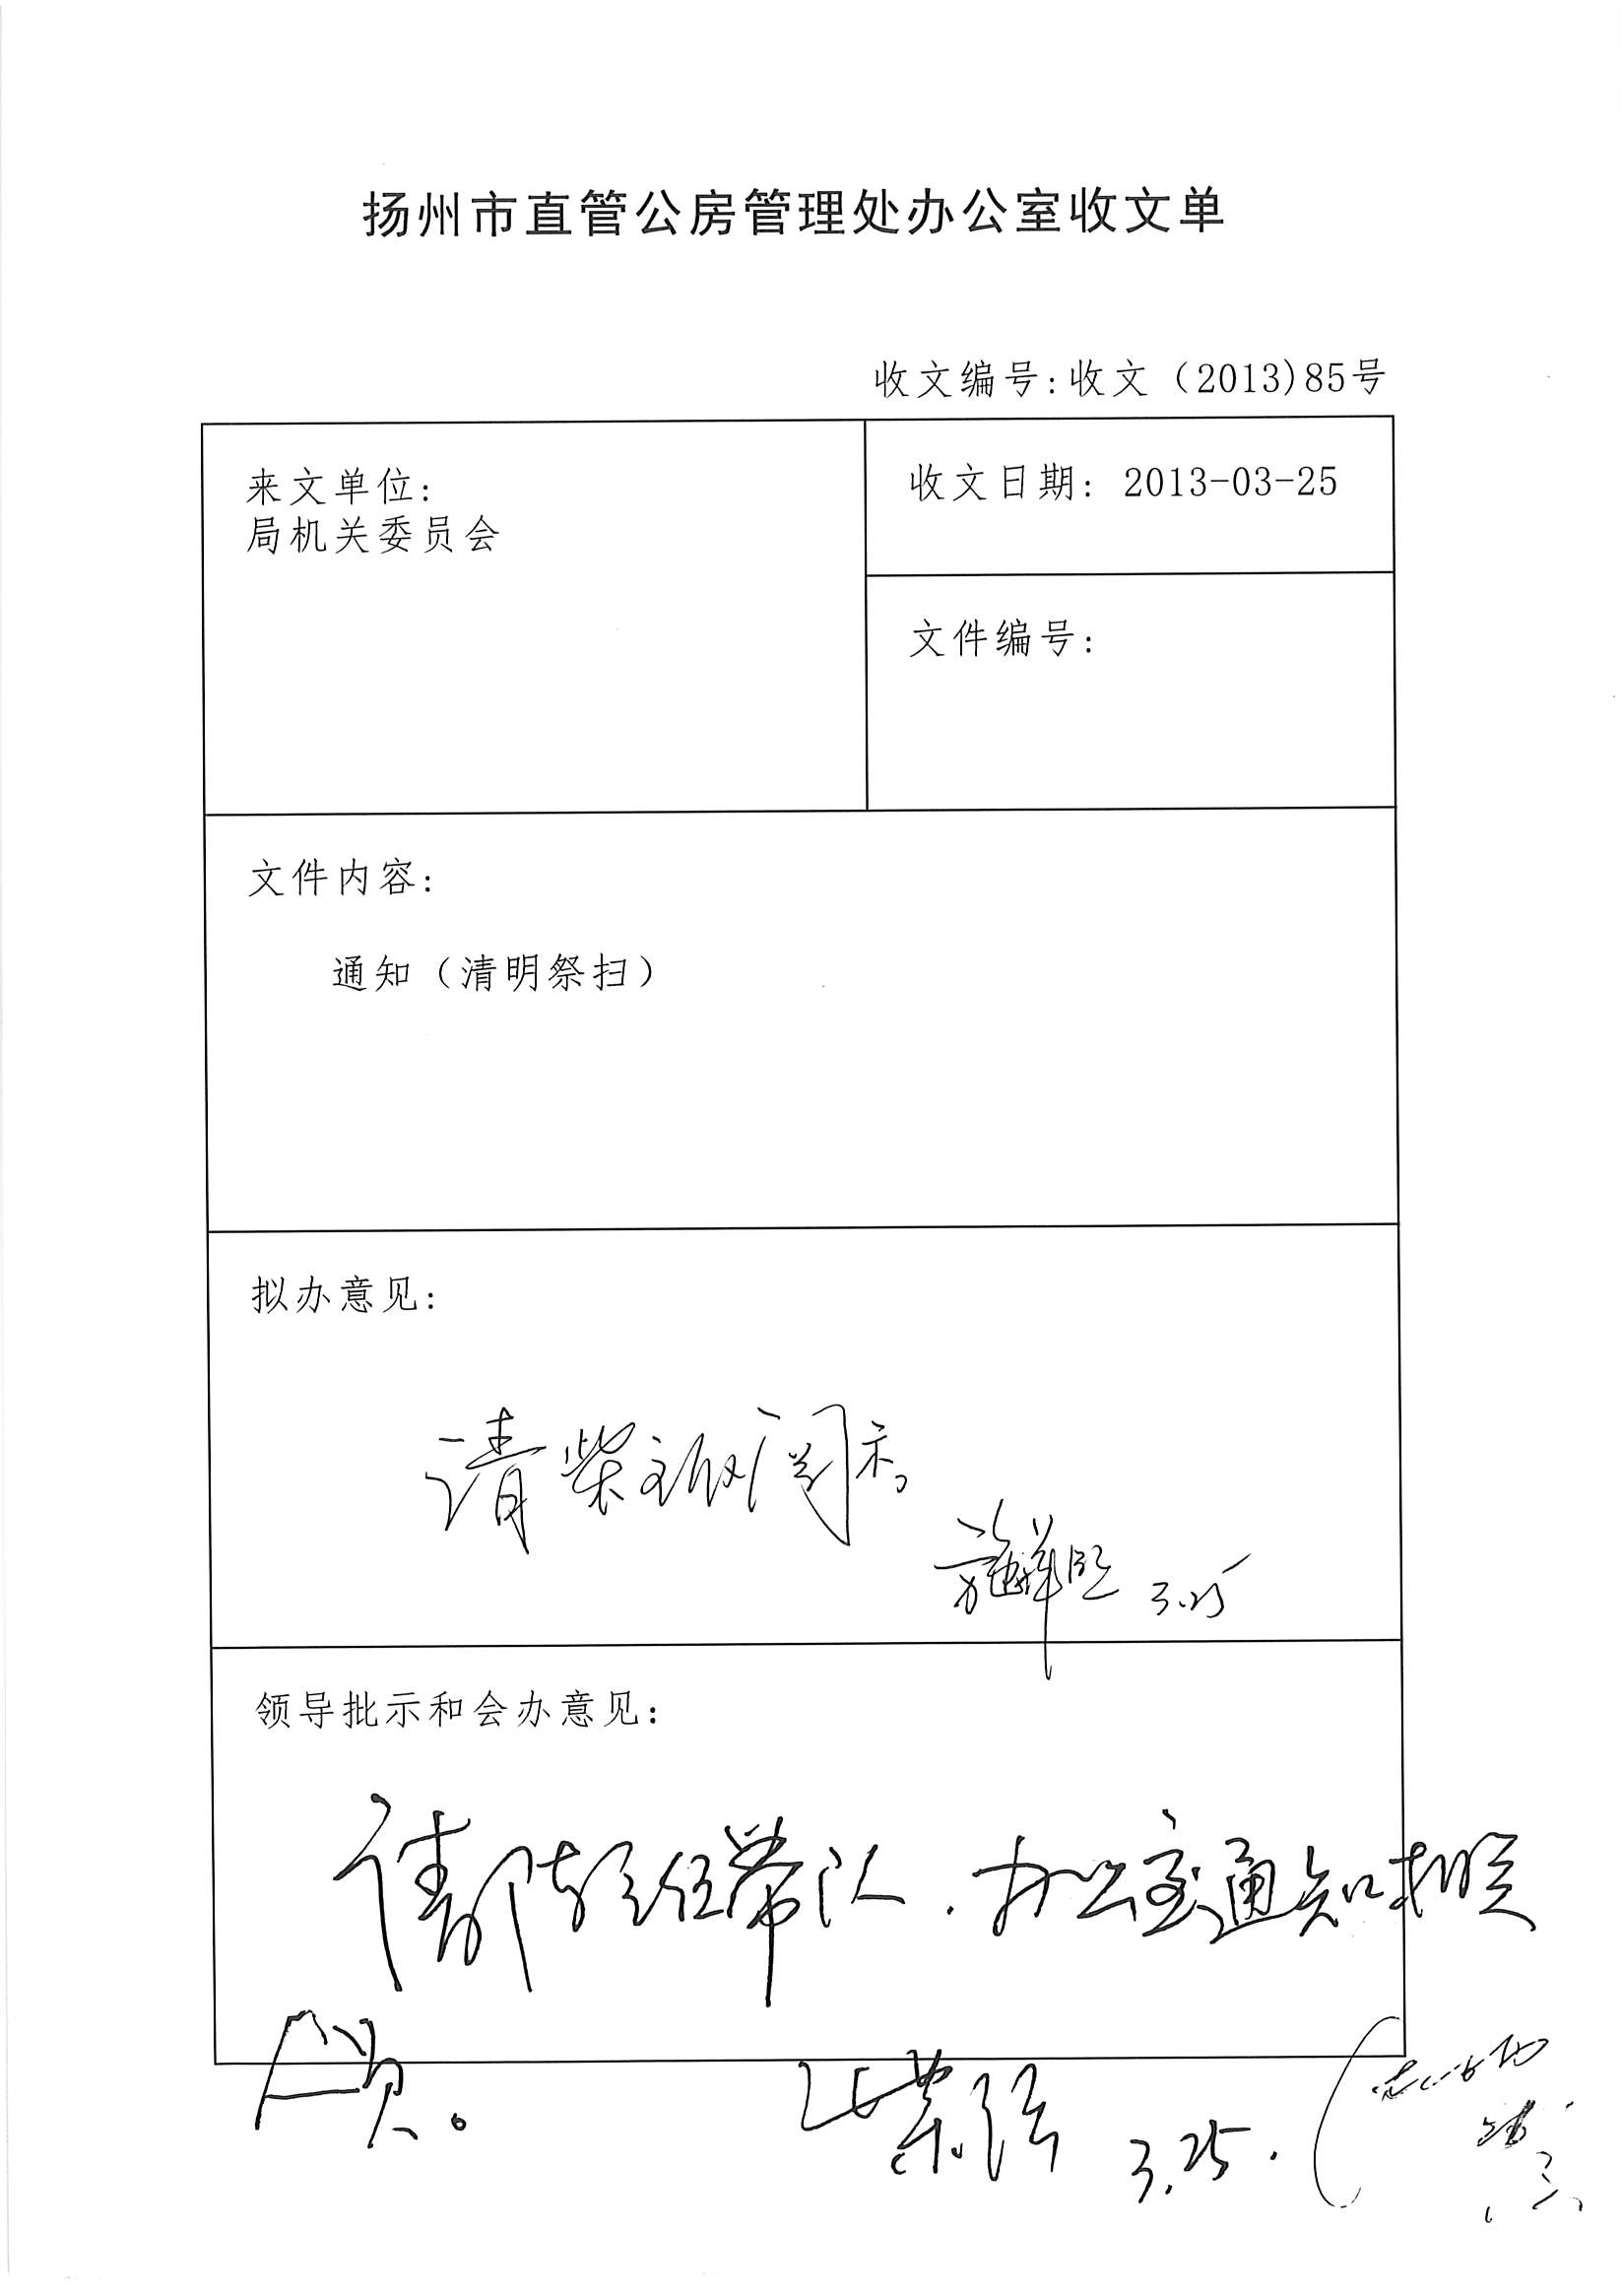 扬州市直管公房管理处办公室收文单
收文编号:收文（2013)85号
来文单位:
局机关委员会
收文日期: 2013-03-25
文件编号:
文件内容:
通知（清明祭扫）
拟办意见:
请柴主任阅示。
3.25
领导批示和会办意见:
请 主任带队.办公室通知相关
人员。
3.25.